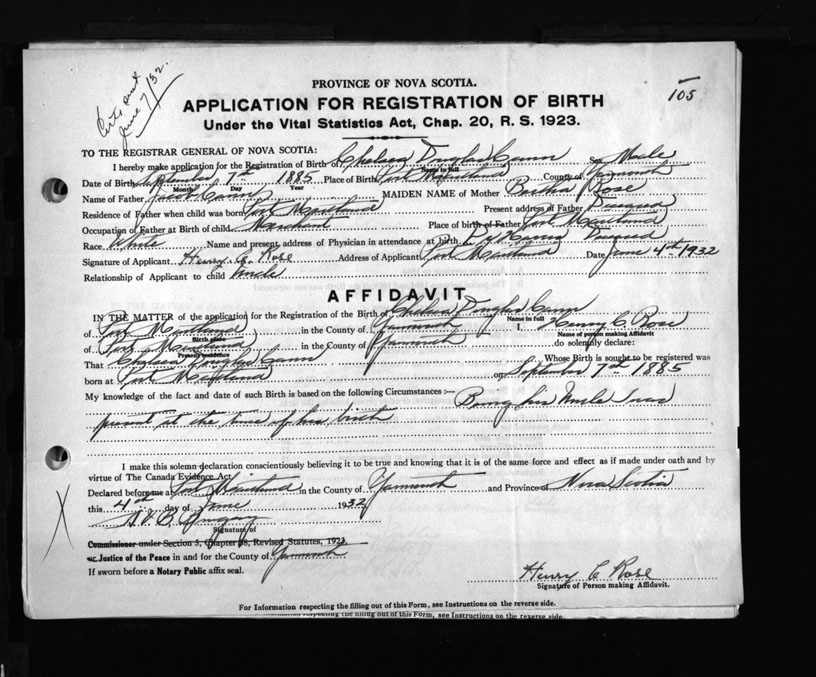 Cert. sent
June 7/32.
105
PROVINCE OF NOVA SCOTIA.
APPLICATION FOR REGISTRATION OF BIRTH
Under the Vital Statistics Act, Chap. 20, R. S. 1923.
TO THE REGISTRAR GENERAL OF NOVA SCOTIA:
I hereby make application for the Registration of Birth of Chelsea Douglas Cann Sex Male
Name in full
Date of Birth September 7th 1885 Place of Birth Port Maitland County of Yarmouth
Month Day Year
Name of Father Jacob Cann MAIDEN NAME of Mother Bertha Rose
Residence of Father when child was born Port Maitland Present address of Father Deceased
Occupation of Father at Birth of child Merchant Place of birth of Father Port Maitland
Race White Name and present address of Physician in attendance at birth Deceased
Signature of Applicant Henry C. Rose Address of Applicant Port Maitland Date June 4th 1932
Relationship of Applicant to child Uncle
AFFIDAVIT
IN THE MATTER of the application for the Registration of the Birth of Chelsea Douglas Cann
Name in full
of Port Maitland in the County of Yarmouth I, Henry C Rose
Birth place Name of person making Affidavit
of Port Maitland in the County of Yarmouth do solemnly declare:
Present residence
That Chelsea Douglas Cann Whose Birth is sought to be registered was
born at Port Maitland on September 7th 1885
My knowledge of the fact and date of such Birth is based on the following Circumstances :— Being his Uncle I was
present at the time of his birth
I make this solemn declaration conscientiously believing it to be true and knowing that it is of the same force and effect as if made under oath and by
virtue of The Canada Evidence Act.
Declared before me at Port Maitland in the County of Yarmouth and Province of Nova Scotia
this 4th day of June 1932
Signature of
Commissioner under Section 5, Chapter 38, Revised Statutes, 1923.
or Justice of the Peace in and for the County of Yarmouth
If sworn before a Notary Public affix seal.
Henry C Rose
Signature of Person making Affidavit.
For Information respecting the filling out of this Form, see Instructions on the reverse side.
respecting the filling out of this Form, see Instructions on the reverse side.